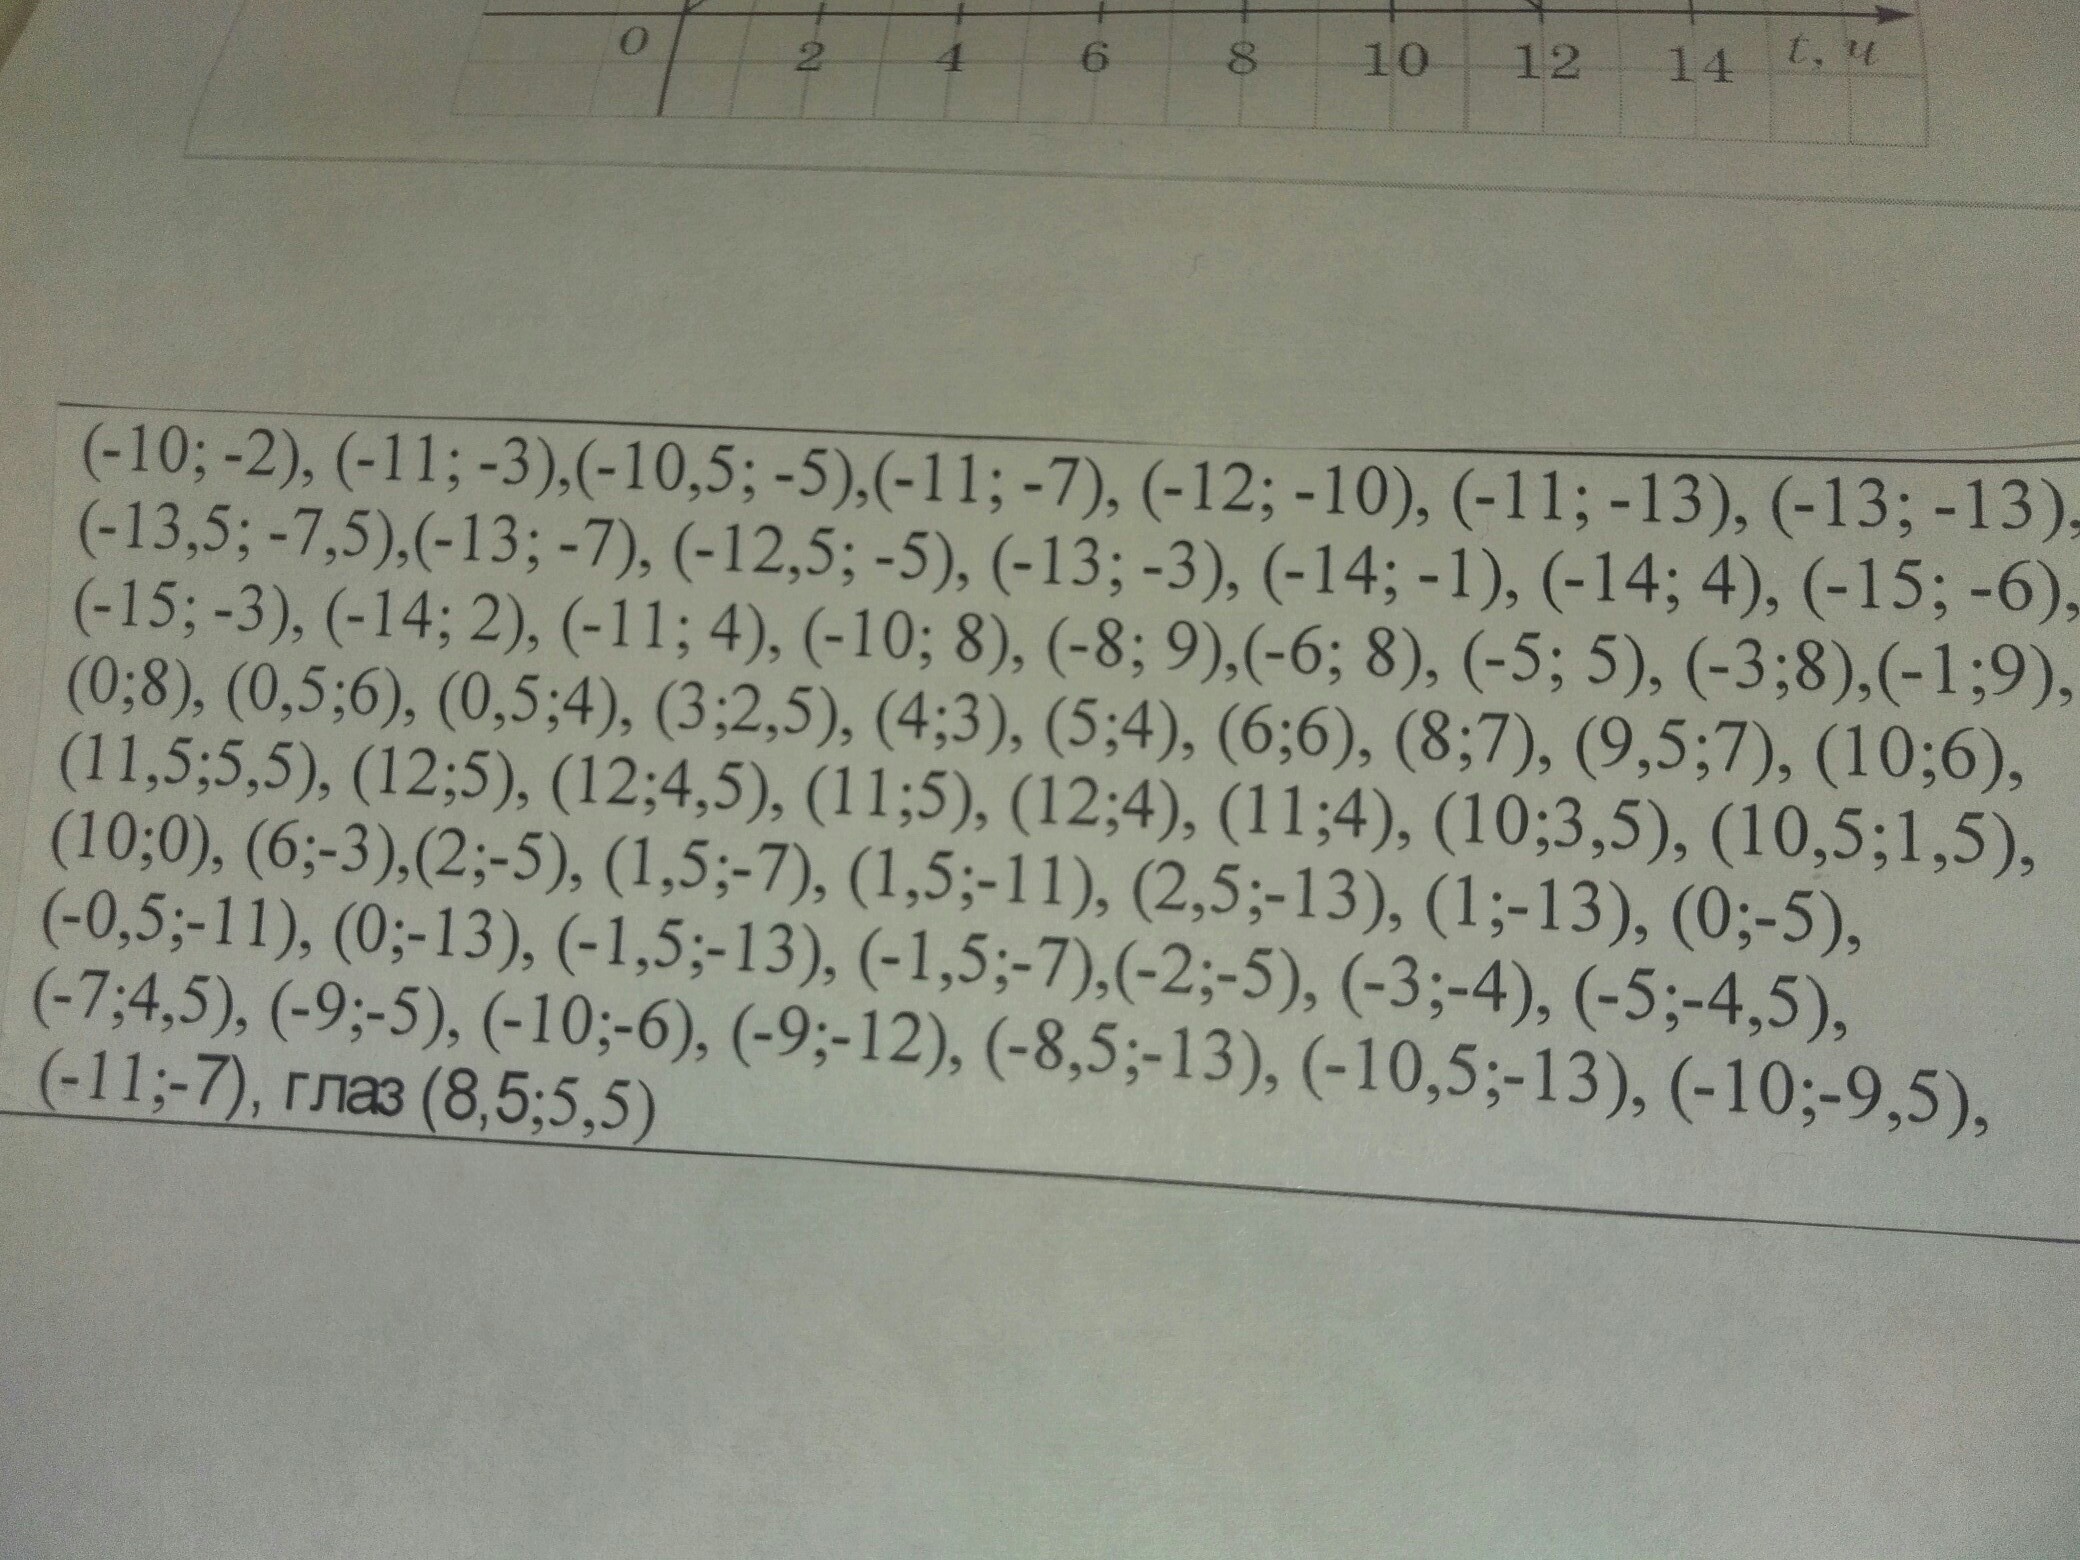 0 2 4 6 8 10 12 14 t, ч
(-10; -2), (-11; -3),(-10,5; -5),(-11; -7), (-12; -10), (-11; -13), (-13; -13),
(-13,5; -7,5),(-13; -7), (-12,5; -5), (-13; -3), (-14; -1), (-14; 4), (-15; -6),
(-15; -3), (-14; 2), (-11; 4), (-10; 8), (-8; 9),(-6; 8), (-5; 5), (-3;8),(-1;9),
(0;8), (0,5;6), (0,5;4), (3;2,5), (4;3), (5;4), (6;6), (8;7), (9,5;7), (10;6),
(11,5;5,5), (12;5), (12;4,5), (11;5), (12;4), (11;4), (10;3,5), (10,5;1,5),
(10;0), (6;-3),(2;-5), (1,5;-7), (1,5;-11), (2,5;-13), (1;-13), (0;-5),
(-0,5;-11), (0;-13), (-1,5;-13), (-1,5;-7),(-2;-5), (-3;-4), (-5;-4,5),
(-7;4,5), (-9;-5), (-10;-6), (-9;-12), (-8,5;-13), (-10,5;-13), (-10;-9,5),
(-11;-7), глаз (8,5;5,5)